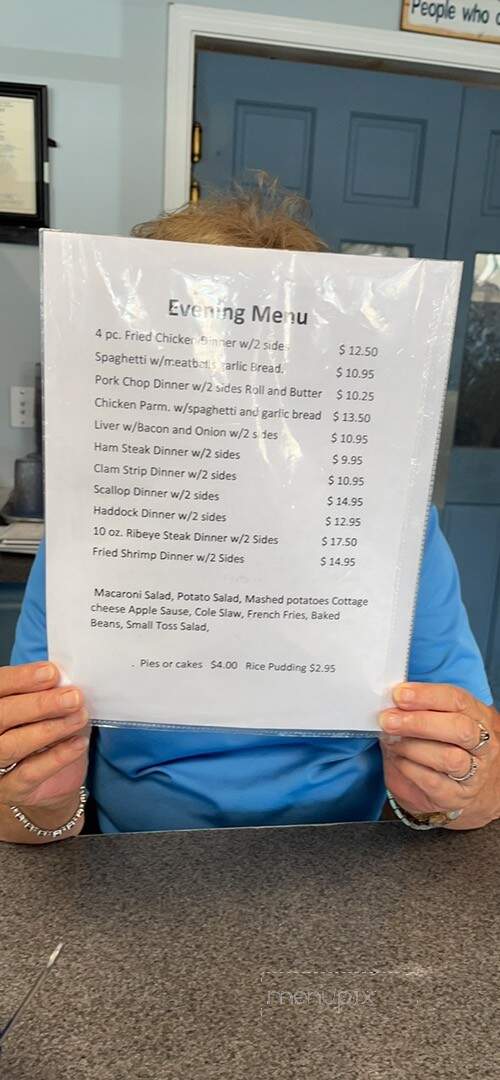 People who
Evening Menu
4 pc. Fried Chicken Dinner w/2 sides $ 12.50
Spaghetti w/meatballs garlic Bread. $ 10.95
Pork Chop Dinner w/2 sides Roll and Butter $ 10.25
Chicken Parm. w/spaghetti and garlic bread $ 13.50
Liver w/Bacon and Onion w/2 sides $ 10.95
Ham Steak Dinner w/2 sides $ 9.95
Clam Strip Dinner w/2 sides $ 10.95
Scallop Dinner w/2 sides $ 14.95
Haddock Dinner w/2 sides $ 12.95
10 oz. Ribeye Steak Dinner w/2 Sides $ 17.50
Fried Shrimp Dinner w/2 Sides $ 14.95
Macaroni Salad, Potato Salad, Mashed potatoes Cottage
cheese Apple Sause, Cole Slaw, French Fries, Baked
Beans, Small Toss Salad,
. Pies or cakes $4.00 Rice Pudding $2.95
menupix